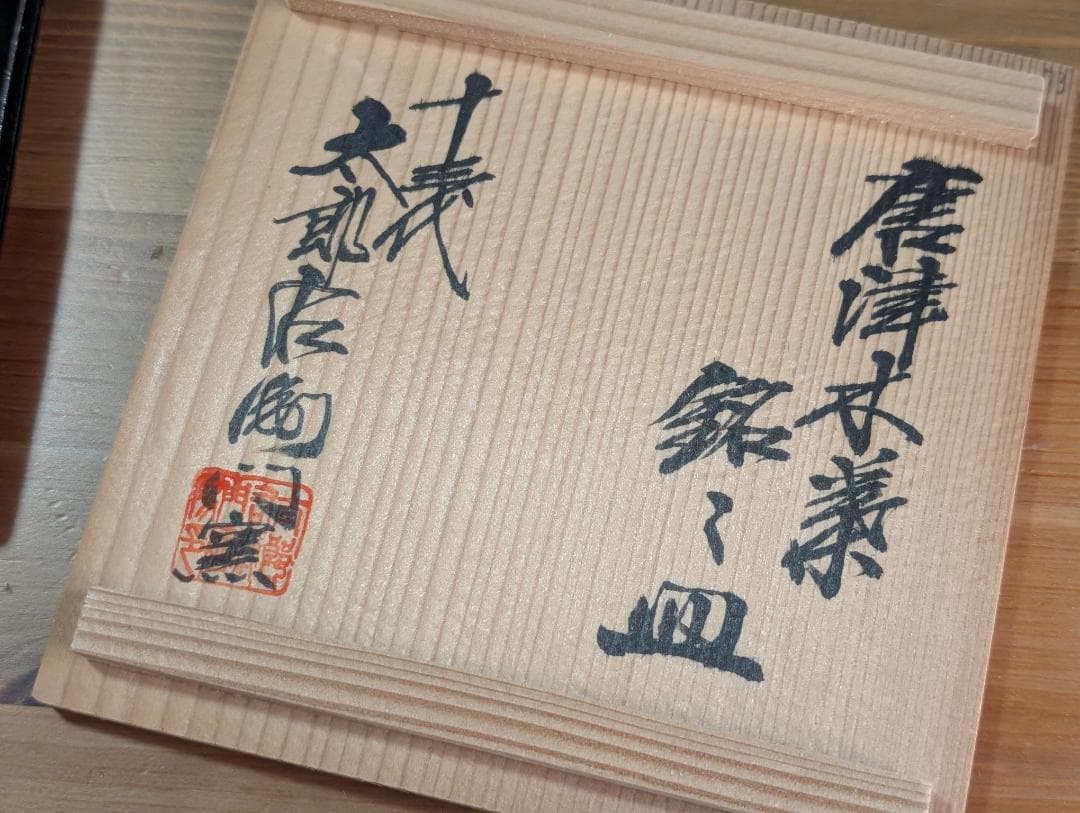 唐津木葉
銘々皿
十三代
太郎右衛門窯